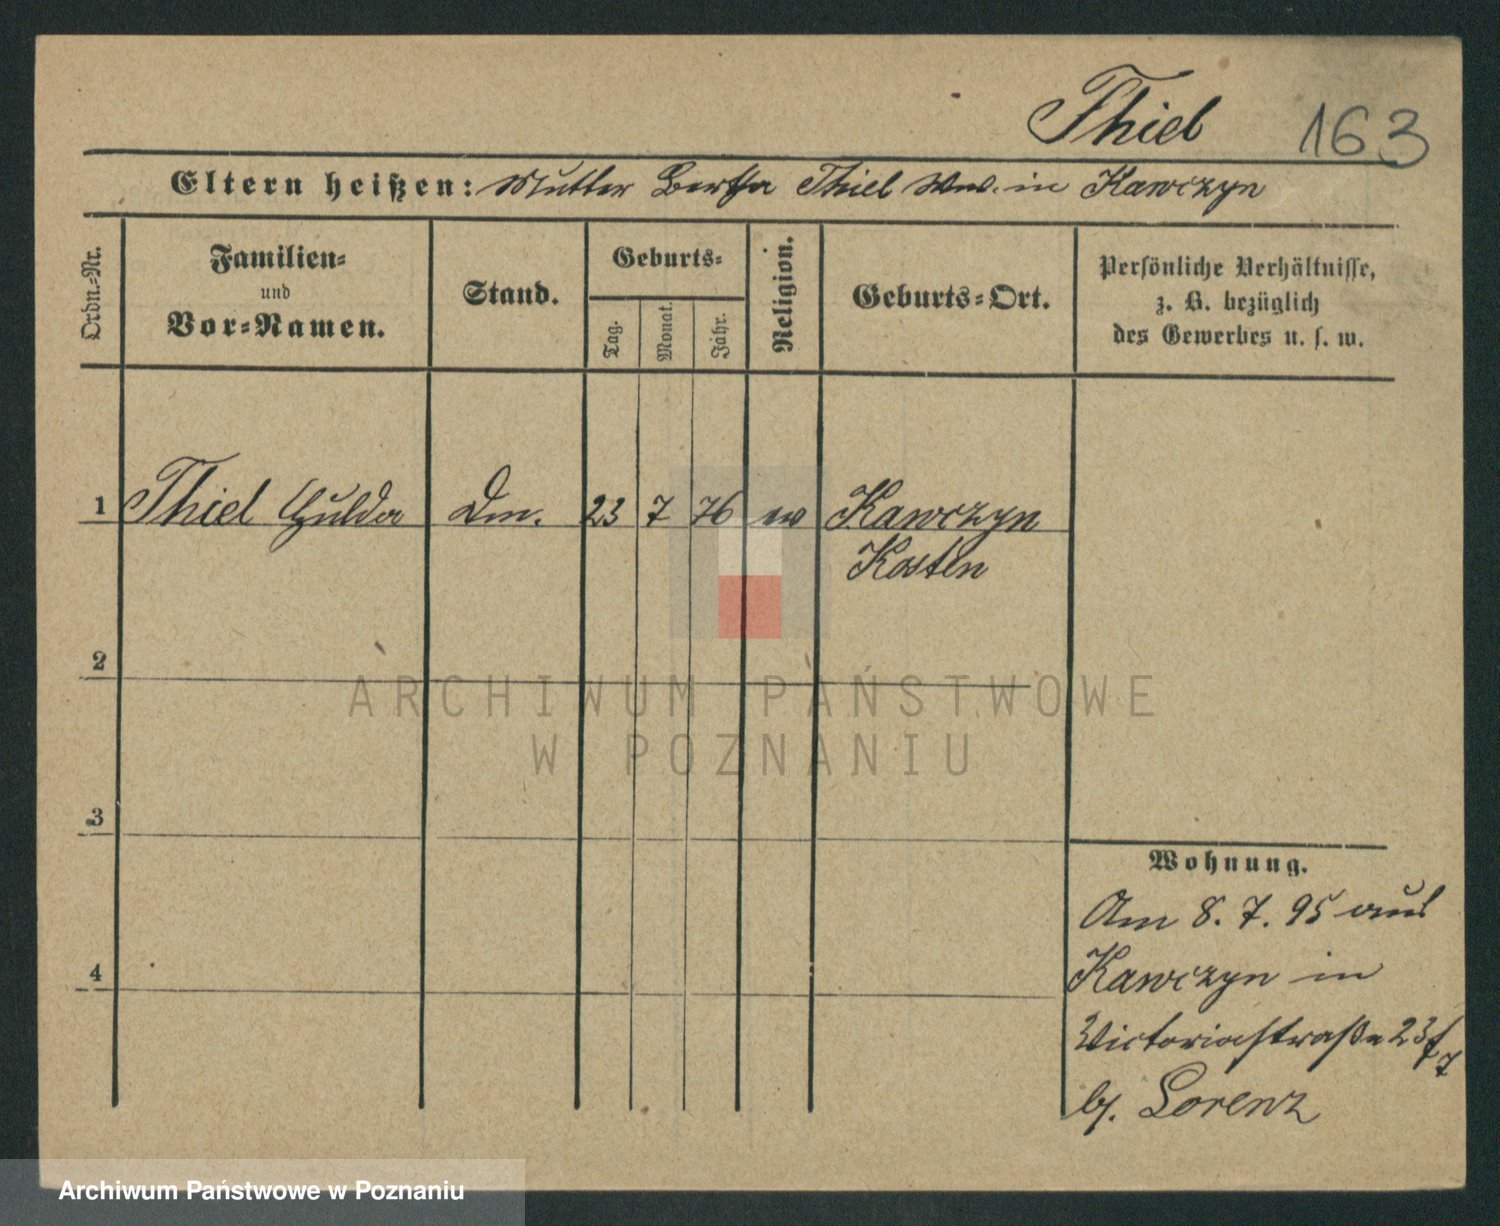 Thiel 163
Eltern heißen: Mutter Bertha Thiel Ww. in Kawczyn
Ordn.-Nr.
Familien-
und
Vor-Namen.
Stand.
Geburts-
Tag.
Monat.
Jahr.
Religion.
Geburts-Ort.
Persönliche Verhältnisse,
z. B. bezüglich
des Gewerbes u. s. w.
1 Thiel Hulda 23 7 76 ev Kawczyn
Kosten
2
ARCHIWUM PAŃSTWOWE
W POZNANIU
3
Wohnung.
Am 8. 7. 95 aus
4
Kawczyn in
Victoriastraße 23
b/. Lorenz
Archiwum Państwowe w Poznaniu